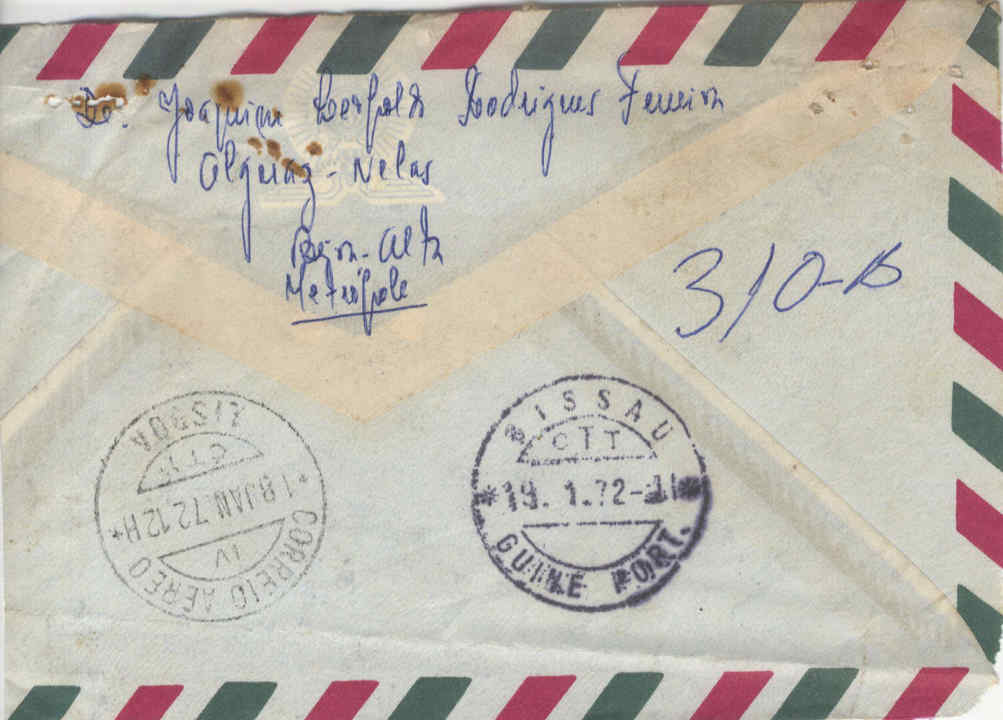 Joaquim Leopoldo Rodrigues Ferreira
Nelas
Beira-Alta
Metrópole
310-B
LISBOA
CTT
*18JAN.72 12H*
IV
CORREIO AEREO
BISSAU
CTT
*19. 1.72-11*
GUINE PORT.